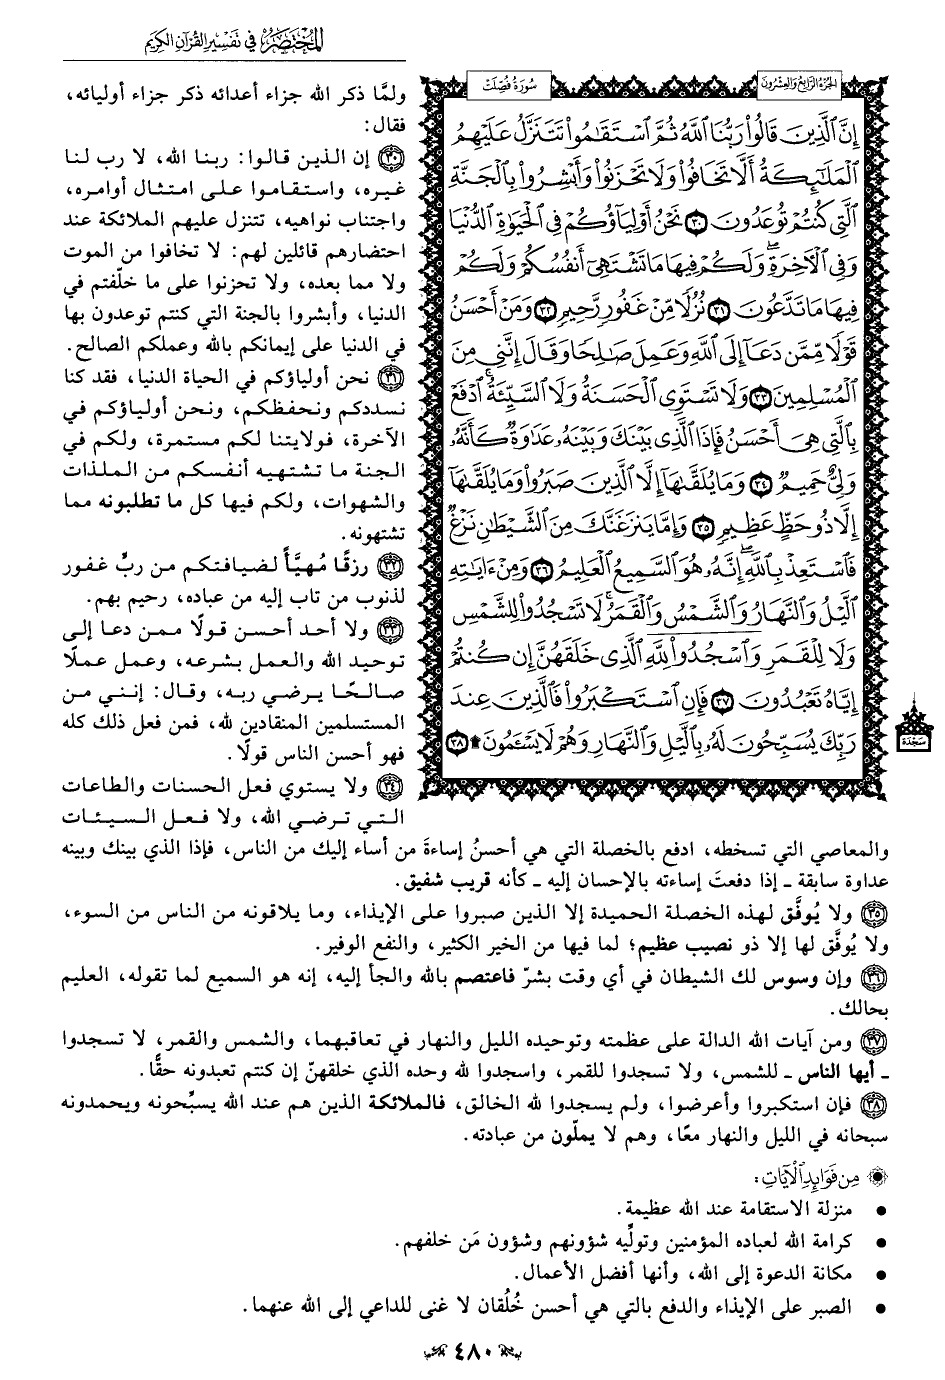 المختصر في تفسير القرآن الكريم
الجزء الرابع والعشرون
سورة فصلت
إِنَّ ٱلَّذِينَ قَالُوا۟ رَبُّنَا ٱللَّهُ ثُمَّ ٱسْتَقَٰمُوا۟ تَتَنَزَّلُ عَلَيْهِمُ
ٱلْمَلَٰٓئِكَةُ أَلَّا تَخَافُوا۟ وَلَا تَحْزَنُوا۟ وَأَبْشِرُوا۟ بِٱلْجَنَّةِ
ٱلَّتِى كُنتُمْ تُوعَدُونَ ٣٠ نَحْنُ أَوْلِيَآؤُكُمْ فِى ٱلْحَيَوٰةِ ٱلدُّنْيَا
وَفِى ٱلْءَاخِرَةِ ۖ وَلَكُمْ فِيهَا مَا تَشْتَهِىٓ أَنفُسُكُمْ وَلَكُمْ
فِيهَا مَا تَدَّعُونَ ٣١ نُزُلًا مِّنْ غَفُورٍ رَّحِيمٍ ٣٢ وَمَنْ أَحْسَنُ
قَوْلًا مِّمَّن دَعَآ إِلَى ٱللَّهِ وَعَمِلَ صَٰلِحًا وَقَالَ إِنَّنِى مِنَ
ٱلْمُسْلِمِينَ ٣٣ وَلَا تَسْتَوِى ٱلْحَسَنَةُ وَلَا ٱلسَّيِّئَةُ ۚ ٱدْفَعْ
بِٱلَّتِى هِىَ أَحْسَنُ فَإِذَا ٱلَّذِى بَيْنَكَ وَبَيْنَهُۥ عَدَٰوَةٌ كَأَنَّهُۥ
وَلِىٌّ حَمِيمٌ ٣٤ وَمَا يُلَقَّىٰهَآ إِلَّا ٱلَّذِينَ صَبَرُوا۟ وَمَا يُلَقَّىٰهَآ
إِلَّا ذُو حَظٍّ عَظِيمٍ ٣٥ وَإِمَّا يَنزَغَنَّكَ مِنَ ٱلشَّيْطَٰنِ نَزْغٌ
فَٱسْتَعِذْ بِٱللَّهِ ۖ إِنَّهُۥ هُوَ ٱلسَّمِيعُ ٱلْعَلِيمُ ٣٦ وَمِنْ ءَايَٰتِهِ
ٱلَّيْلُ وَٱلنَّهَارُ وَٱلشَّمْسُ وَٱلْقَمَرُ ۚ لَا تَسْجُدُوا۟ لِلشَّمْسِ
وَلَا لِلْقَمَرِ وَٱسْجُدُوا۟ لِلَّهِ ٱلَّذِى خَلَقَهُنَّ إِن كُنتُمْ
إِيَّاهُ تَعْبُدُونَ ٣٧ فَإِنِ ٱسْتَكْبَرُوا۟ فَٱلَّذِينَ عِندَ
رَبِّكَ يُسَبِّحُونَ لَهُۥ بِٱلَّيْلِ وَٱلنَّهَارِ وَهُمْ لَا يَسْـَٔمُونَ ۩ ٣٨
سجدة
ولمَّا ذكر الله جزاء أعدائه ذكر جزاء أوليائه،
فقال:
٣٠ إن الذين قالوا: ربنا الله، لا رب لنا
غيره، واستقاموا على امتثال أوامره،
واجتناب نواهيه، تتنزل عليهم الملائكة عند
احتضارهم قائلين لهم: لا تخافوا من الموت
ولا مما بعده، ولا تحزنوا على ما خلّفتم في
الدنيا، وأبشروا بالجنة التي كنتم توعدون بها
في الدنيا على إيمانكم بالله وعملكم الصالح.
٣١ نحن أولياؤكم في الحياة الدنيا، فقد كنا
نسددكم ونحفظكم، ونحن أولياؤكم في
الآخرة، فولايتنا لكم مستمرة، ولكم في
الجنة ما تشتهيه أنفسكم من الملذات
والشهوات، ولكم فيها كل ما تطلبونه مما
تشتهونه.
٣٢ رزقًا مُهيَّأً لضيافتكم من ربٍّ غفور
لذنوب من تاب إليه من عباده، رحيم بهم.
٣٣ ولا أحد أحسن قولًا ممن دعا إلى
توحيد الله والعمل بشرعه، وعمل عملًا
صالحًا يرضي ربه، وقال: إنني من
المستسلمين المنقادين لله، فمن فعل ذلك كله
فهو أحسن الناس قولًا.
٣٤ ولا يستوي فعل الحسنات والطاعات
التي ترضي الله، ولا فعل السيئات
والمعاصي التي تسخطه، ادفع بالخصلة التي هي أحسنُ إساءةَ من أساء إليك من الناس، فإذا الذي بينك وبينه
عداوة سابقة ـ إذا دفعتَ إساءته بالإحسان إليه ـ كأنه قريب شفيق.
٣٥ ولا يُوفَّق لهذه الخصلة الحميدة إلا الذين صبروا على الإيذاء، وما يلاقونه من الناس من السوء،
ولا يُوفَّق لها إلا ذو نصيب عظيم؛ لما فيها من الخير الكثير، والنفع الوفير.
٣٦ وإن وسوس لك الشيطان في أي وقت بشرّ فاعتصم بالله والجأ إليه، إنه هو السميع لما تقوله، العليم
بحالك.
٣٧ ومن آيات الله الدالة على عظمته وتوحيده الليل والنهار في تعاقبهما، والشمس والقمر، لا تسجدوا
ـ أيها الناس ـ للشمس، ولا تسجدوا للقمر، واسجدوا لله وحده الذي خلقهنّ إن كنتم تعبدونه حقًّا.
٣٨ فإن استكبروا وأعرضوا، ولم يسجدوا لله الخالق، فالملائكة الذين هم عند الله يسبِّحونه ويحمدونه
سبحانه في الليل والنهار معًا، وهم لا يملّون من عبادته.
من فوائد الآيات:
• منزلة الاستقامة عند الله عظيمة.
• كرامة الله لعباده المؤمنين وتولِّيه شؤونهم وشؤون مَن خلفهم.
• مكانة الدعوة إلى الله، وأنها أفضل الأعمال.
• الصبر على الإيذاء والدفع بالتي هي أحسن خُلُقان لا غنى للداعي إلى الله عنهما.
٤٨٠